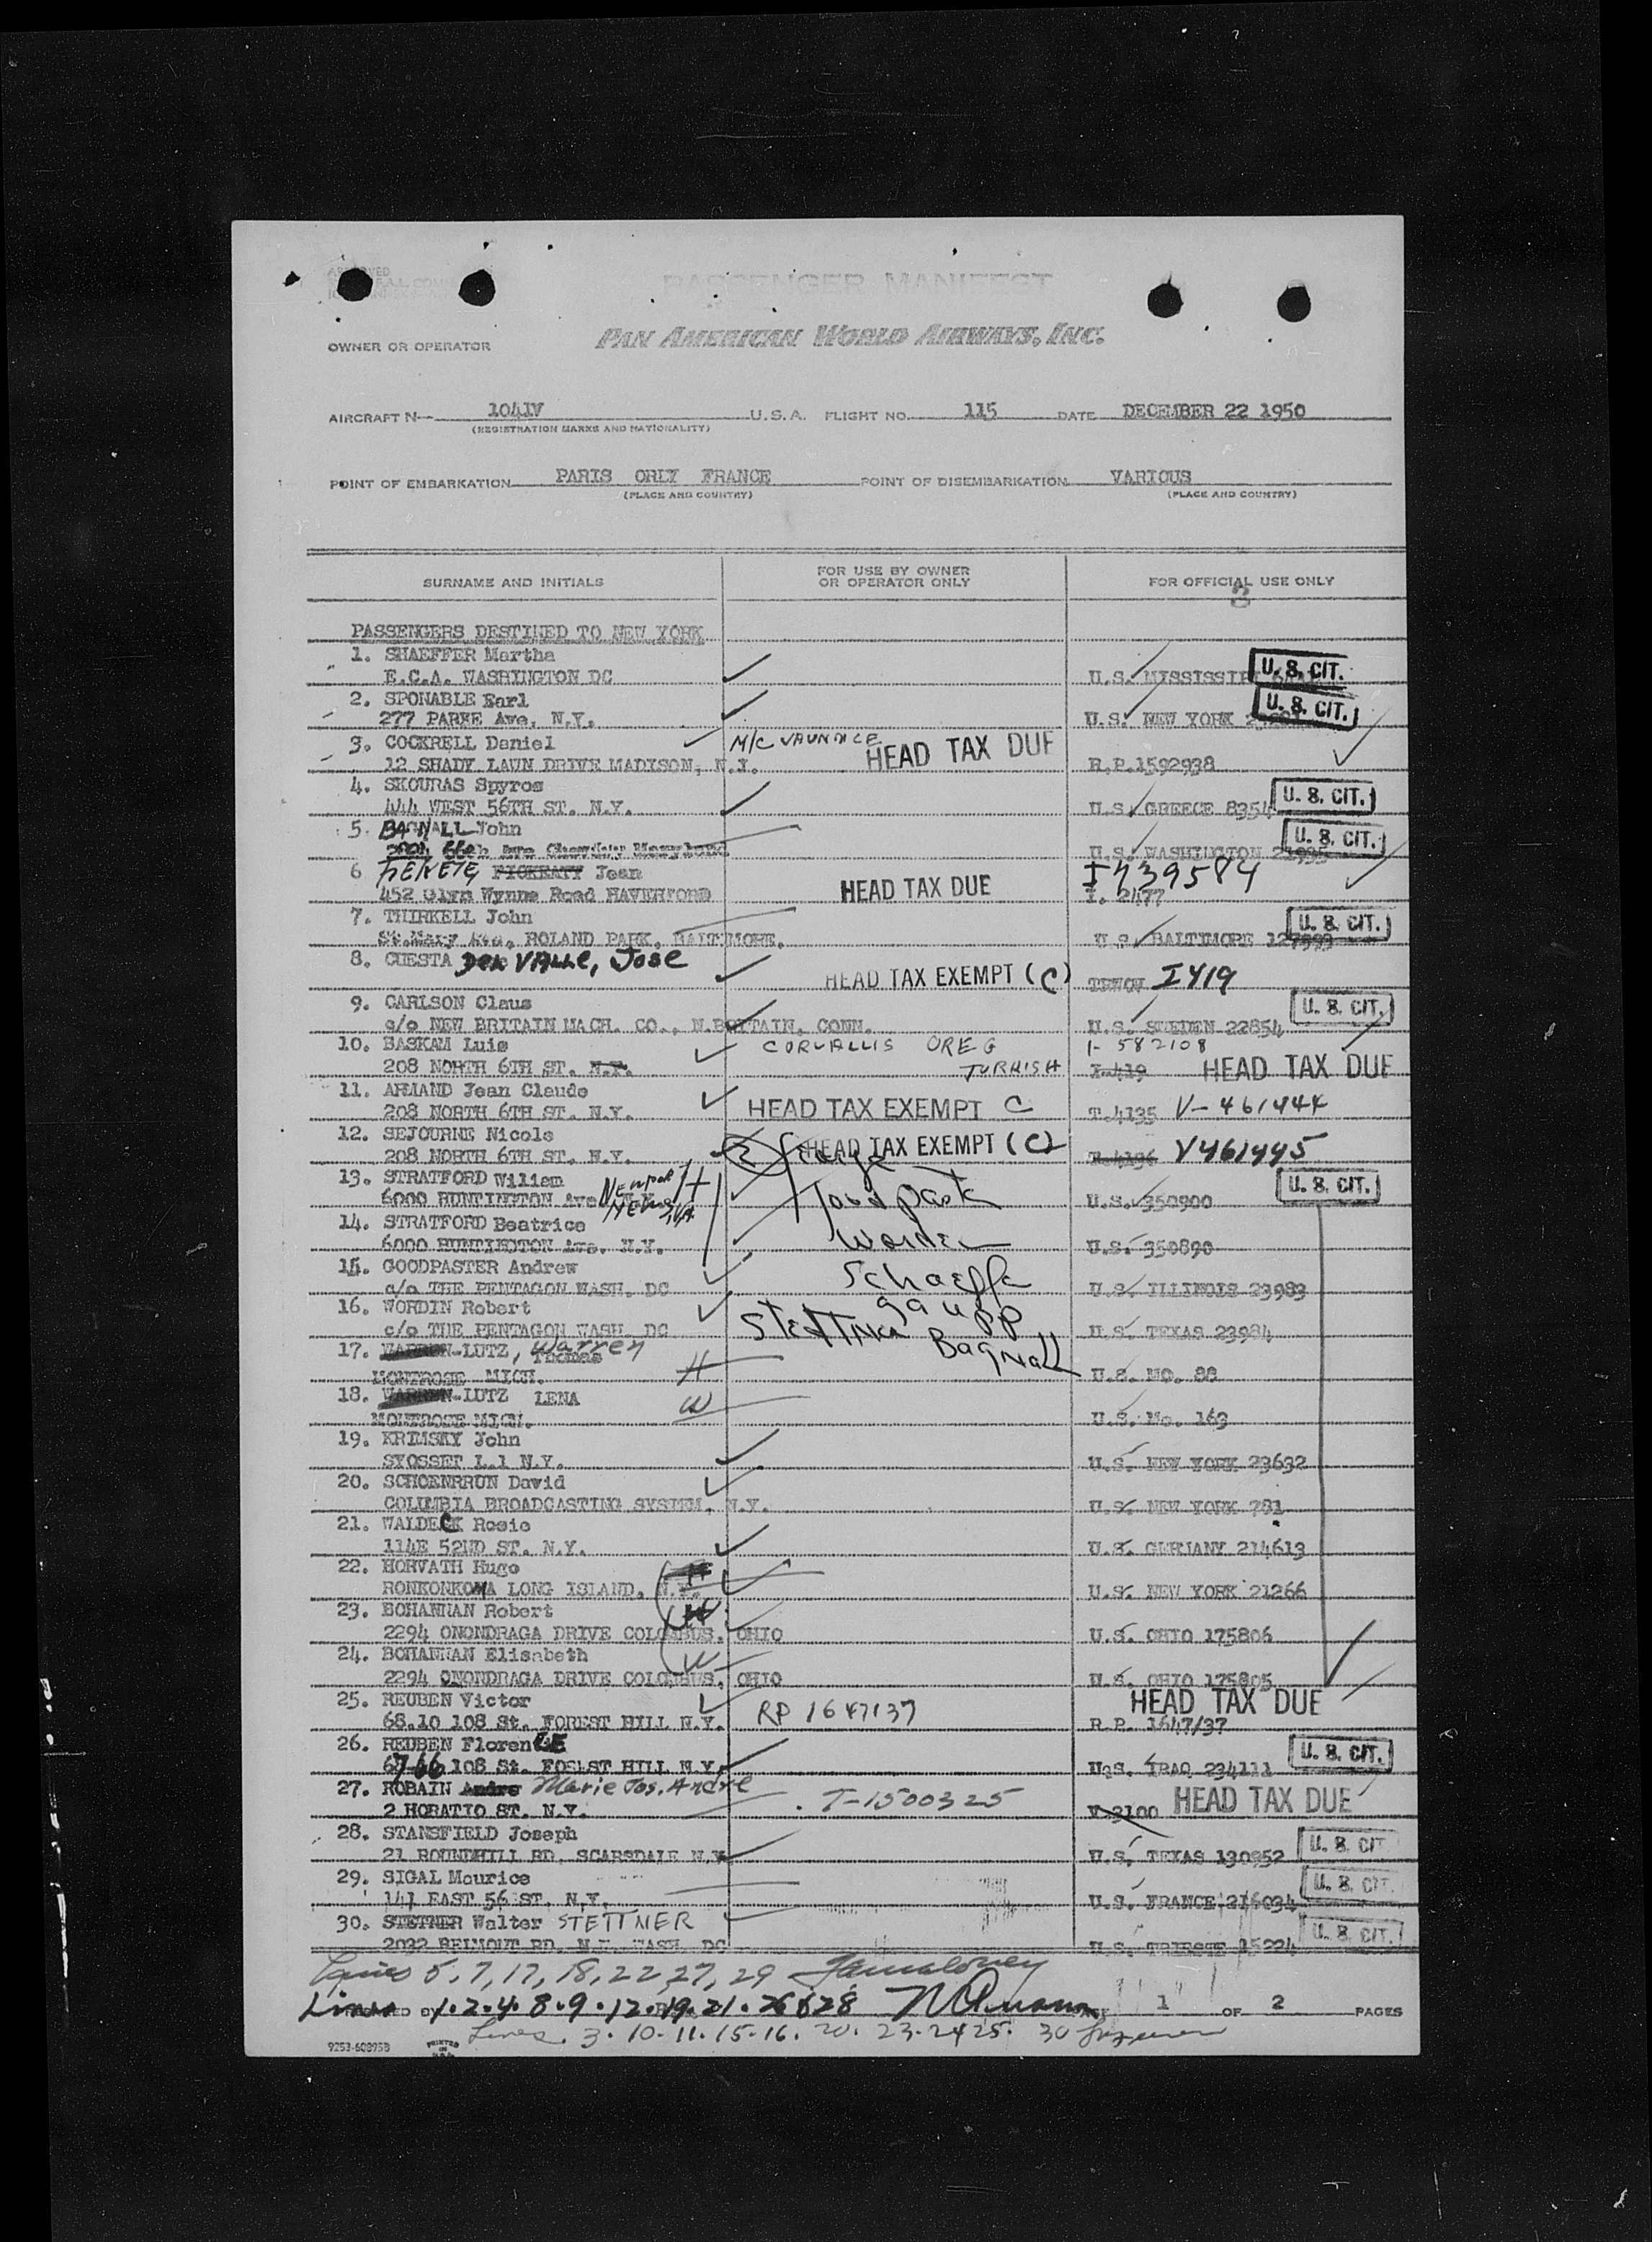 PASSENGER MANIFEST
OWNER OR OPERATOR PAN AMERICAN WORLD AIRWAYS, INC.
AIRCRAFT N— 1041V U.S.A. FLIGHT NO. 115 DATE DECEMBER 22 1950
(REGISTRATION MARKS AND NATIONALITY)
POINT OF EMBARKATION PARIS ORLY FRANCE POINT OF DISEMBARKATION VARIOUS
(PLACE AND COUNTRY) (PLACE AND COUNTRY)
SURNAME AND INITIALS FOR USE BY OWNER OR OPERATOR ONLY FOR OFFICIAL USE ONLY
3
PASSENGERS DESTINED TO NEW YORK
1. SHAEFFER Martha
E.C.A. WASHINGTON DC U.S. U.S. CIT.
2. SPONABLE Earl
277 PARKE Ave, N.Y. U.S. NEW YORK U.S. CIT.
3. COCKRELL Daniel M/C HEAD TAX DUE
12 SHADY LAWN DRIVE MADISON, N.J. R.P.1592938
4. SKOURAS Spyros
444 WEST 56TH ST. N.Y. U.S. GREECE 8354 U.S. CIT.
5. BAGNALL John
U.S. WASHINGTON U.S. CIT.
6 FEKETE Jean I739584
452 Glyn Wynne Road HAVERFORD HEAD TAX DUE I. 2477
7. THIRKELL John
St.Mary Ave, ROLAND PARK, BALTIMORE. U.S. BALTIMORE U.S. CIT.
8. CUESTA Del VALLE, Jose
HEAD TAX EXEMPT (C) I419
9. CARLSON Claus
c/o NEW BRITAIN MACH. CO., N.BRITAIN, CONN. U.S. SWEDEN 22854 U.S. CIT.
10. BASKAM Luis CORVALLIS OREG 1-582108
208 NORTH 6TH ST. N.Y. TURKISH I.419 HEAD TAX DUE
11. ARMAND Jean Claude
208 NORTH 6TH ST. N.Y. HEAD TAX EXEMPT C T.4135 V-461444
12. SEJOURNE Nicole
208 NORTH 6TH ST. N.Y. HEAD TAX EXEMPT (C) T.4136 V461445
13. STRATFORD Wiliam Newport News, VA H
6000 HUNTINGTON Ave. U.S. 350900 U.S. CIT.
14. STRATFORD Beatrice
6000 HUNTINGTON Ave. N.Y. U.S. 350890
15. GOODPASTER Andrew
c/o THE PENTAGON WASH. DC U.S. ILLINOIS 23983
16. WORDIN Robert gaupp
c/o THE PENTAGON WASH. DC U.S. TEXAS 23984
17. WARREN-LUTZ, Warren Thomas Bagnall
MONTROSE MICH. H U.S. MO. 88
18. WARREN-LUTZ LENA W
MONTROSE MICH. U.S. Mo. 163
19. KRIMSKY John
SYOSSET L.I N.Y. U.S. NEW YORK 23632
20. SCHOENRRUN David
COLUMBIA BROADCASTING SYSTEM, N.Y. U.S. NEW YORK 781
21. WALDECK Rosie
114E 52ND ST. N.Y. U.S. GERMANY 214613
22. HORVATH Hugo
RONKONKOMA LONG ISLAND, N.Y. U.S. NEW YORK 21266
23. BOHANNAN Robert
2294 ONONDRAGA DRIVE COLOMBUS, OHIO U.S. OHIO 175806
24. BOHANNAN Elisabeth W
2294 ONONDRAGA DRIVE COLOMBUS, OHIO U.S. OHIO 175805
25. REUBEN Victor HEAD TAX DUE
68.10 108 St. FOREST HILL N.Y. RP 1647137 R.P. 1647/37
26. REUBEN Florence
108 St. FOREST HILL N.Y. U.S. IRAQ 234111 U.S. CIT.
27. ROBAIN Andre Marie Jos. Andre
2 HORATIO ST. N.Y. T-1500325 V.3100 HEAD TAX DUE
28. STANSFIELD Joseph
21 ROUNDHILL RD. SCARSDALE N.Y. U.S. TEXAS 130952 U.S. CIT
29. SIGAL Maurice
141 EAST 56 ST. N.Y. U.S. FRANCE 216034 U.S. CIT.
30. STETNER Walter STETTNER
2032 BELMOUT RD. N.W. WASH. DC U.S. TRIESTE 15224 U.S. CIT.
Lines 5, 7, 17, 18, 22, 27, 29
Lines 1.2.4.8.9.12.19.21.26 & 28 1 OF 2 PAGES
Lines 3.10.11.15.16.20.23.24 25. 30
9253-608958 PRINTED IN U.S.A.